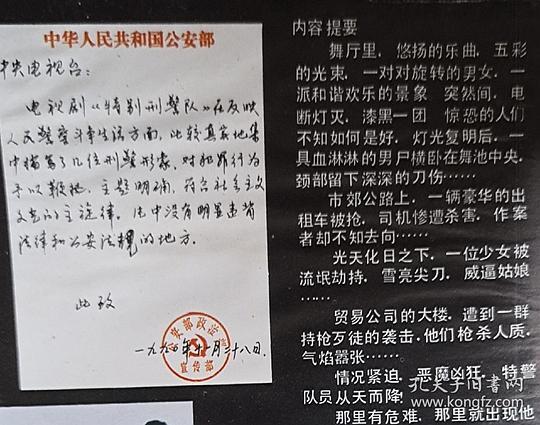 中华人民共和国公安部
中央电视台：
电视剧《特别刑警队》在反映
人民警察斗争生活方面，比较真实地集
中描写了几位刑警形象，对犯罪行为
予以鞭挞，主题明确，符合社会主义
文艺的主旋律。片中没有明显违背
法律和公安法规的地方。
此致
公安部政治部
宣传部
一九九〇年十一月二十八日
内容提要
舞厅里．悠扬的乐曲．五彩
的光束．一对对旋转的男女．一
派和谐欢乐的景象 突然间．电
断灯灭．漆黑一团 惊恐的人们
不知如何是好．灯光复明后．一
具血淋淋的男尸横卧在舞池中央．
颈部留下深深的刀伤……
市郊公路上．一辆豪华的出
租车被抢．司机惨遭杀害．作案
者却不知去向……
光天化日之下．一位少女被
流氓劫持．雪亮尖刀．威逼姑娘
……
贸易公司的大楼．遭到一群
持枪歹徒的袭击．他们枪杀人质．
气焰嚣张……
情况紧迫．恶魔凶狂．特警
队员从天而降！
那里有危难．那里就出现他
孔夫子旧书网
www.kongfz.com